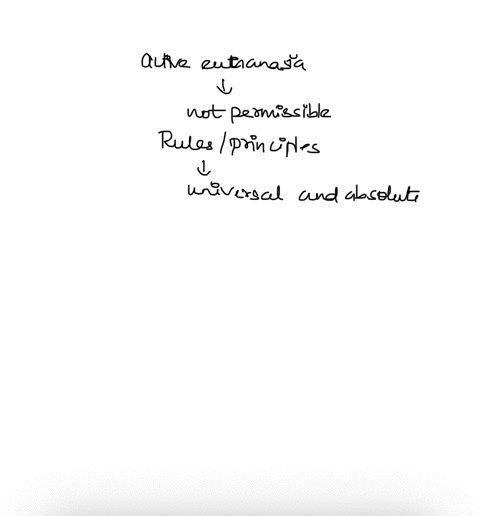 active euthanasia
↓
not permissible
Rules/principles
↓
universal and absolute